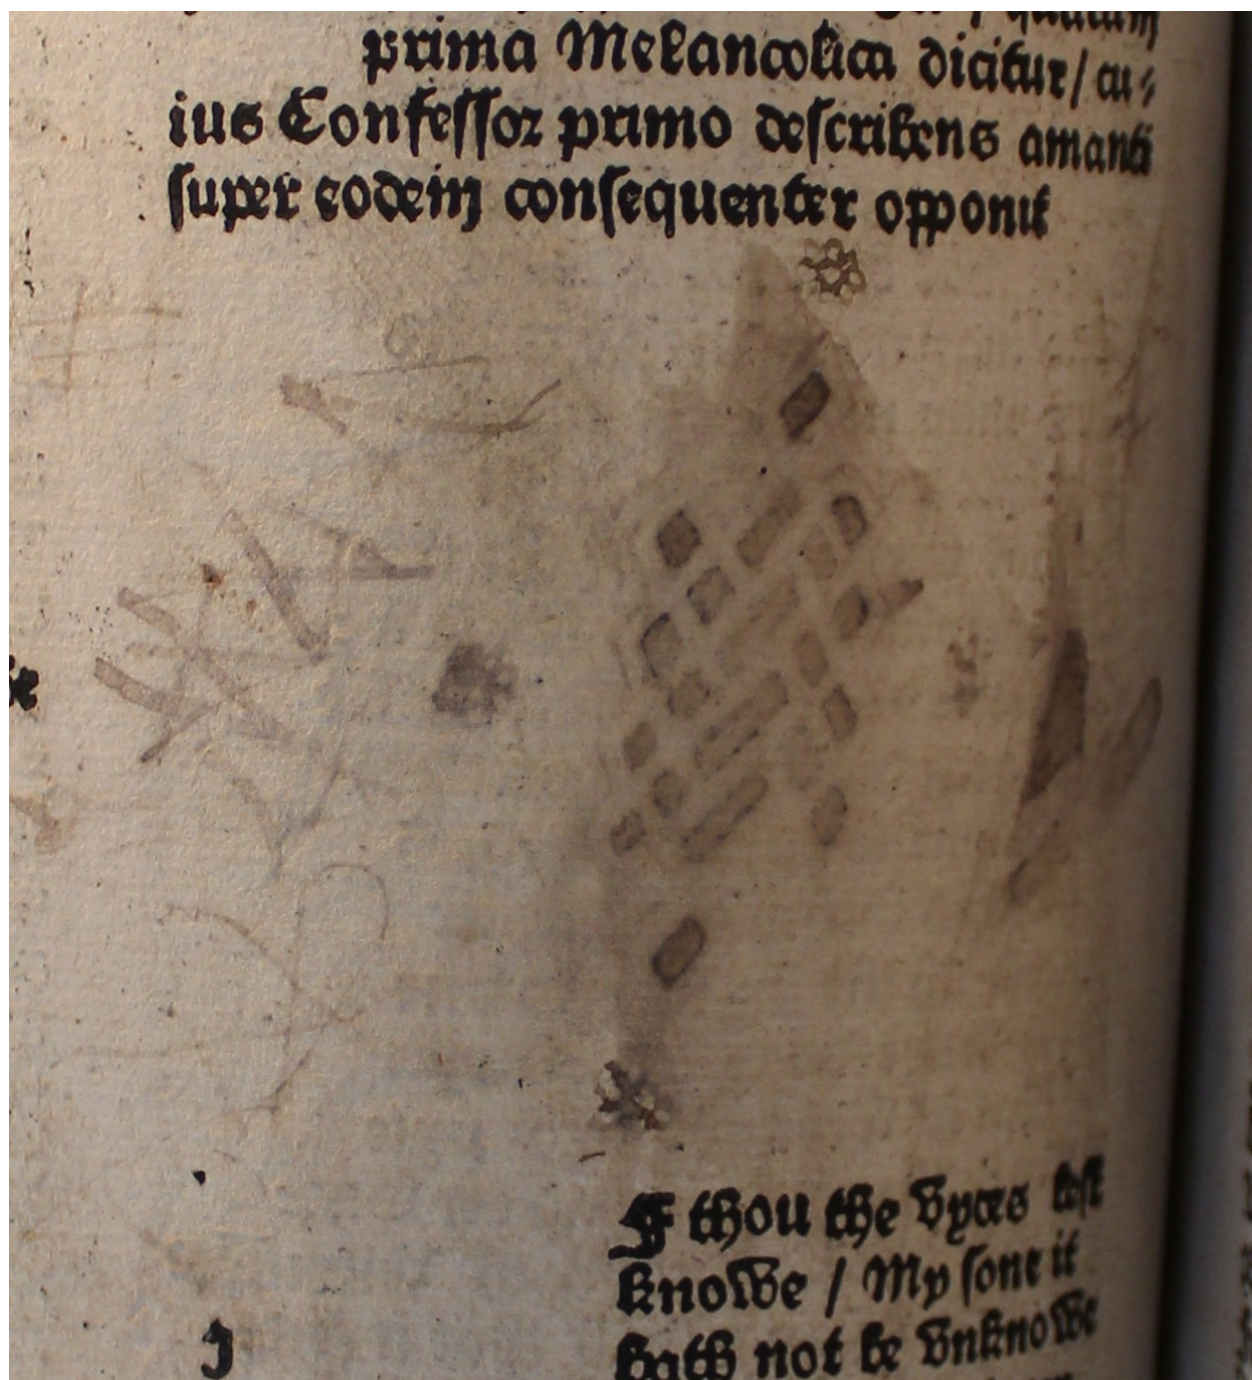 prima Melancolica dicitur / cu⸗
ius Confessor primo describens amanti
super eodem consequenter opponit
If thou the vyces lest
knowe / My sone it
hath not be vnknowe
J